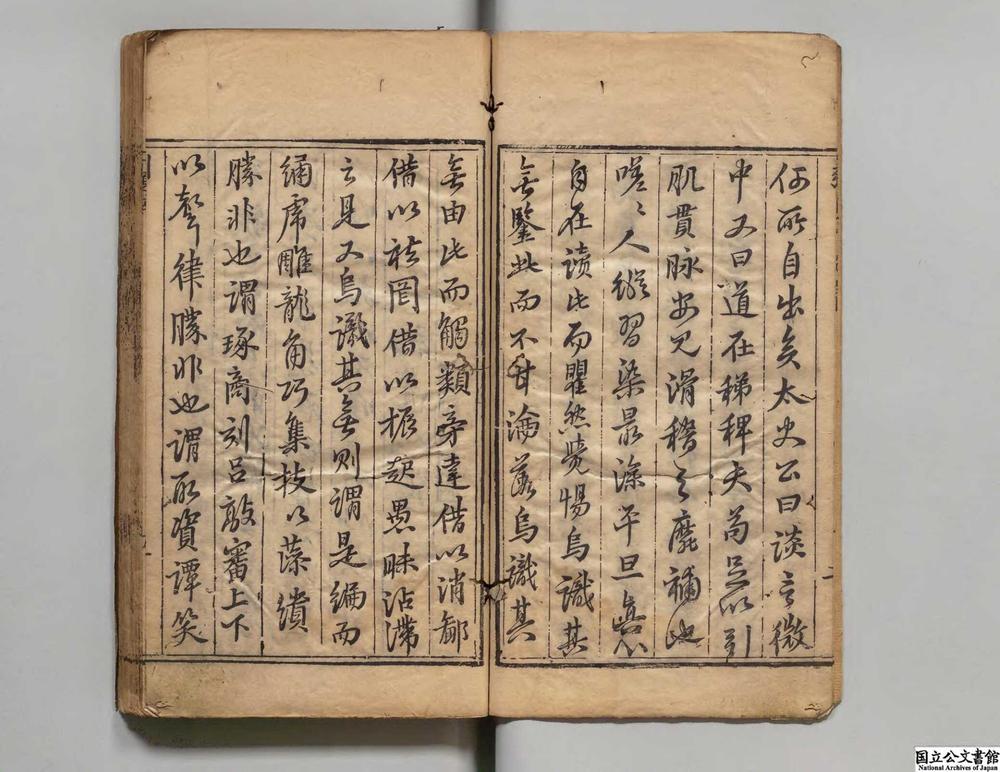 何所自出矣太史公曰談言微
中又曰道在稊稗夫苟足以引
肌貫脉安見滑稽之靡補也
嗟〻人縱習染最深平旦
自在讀此而瞿然覺惕烏識其
無鑒此而不甘淪落烏識其
無由此而觸類旁達借以消鄙
借以祛罔借以振起愚昧沾滯
云是又烏識其無則謂是編而
繡虎雕龍角巧集技以藻繢
勝非也謂琢商刻呂敲審上下
以聲律勝非也謂取資譚笑
二
国立公文書館
National Archives of Japan